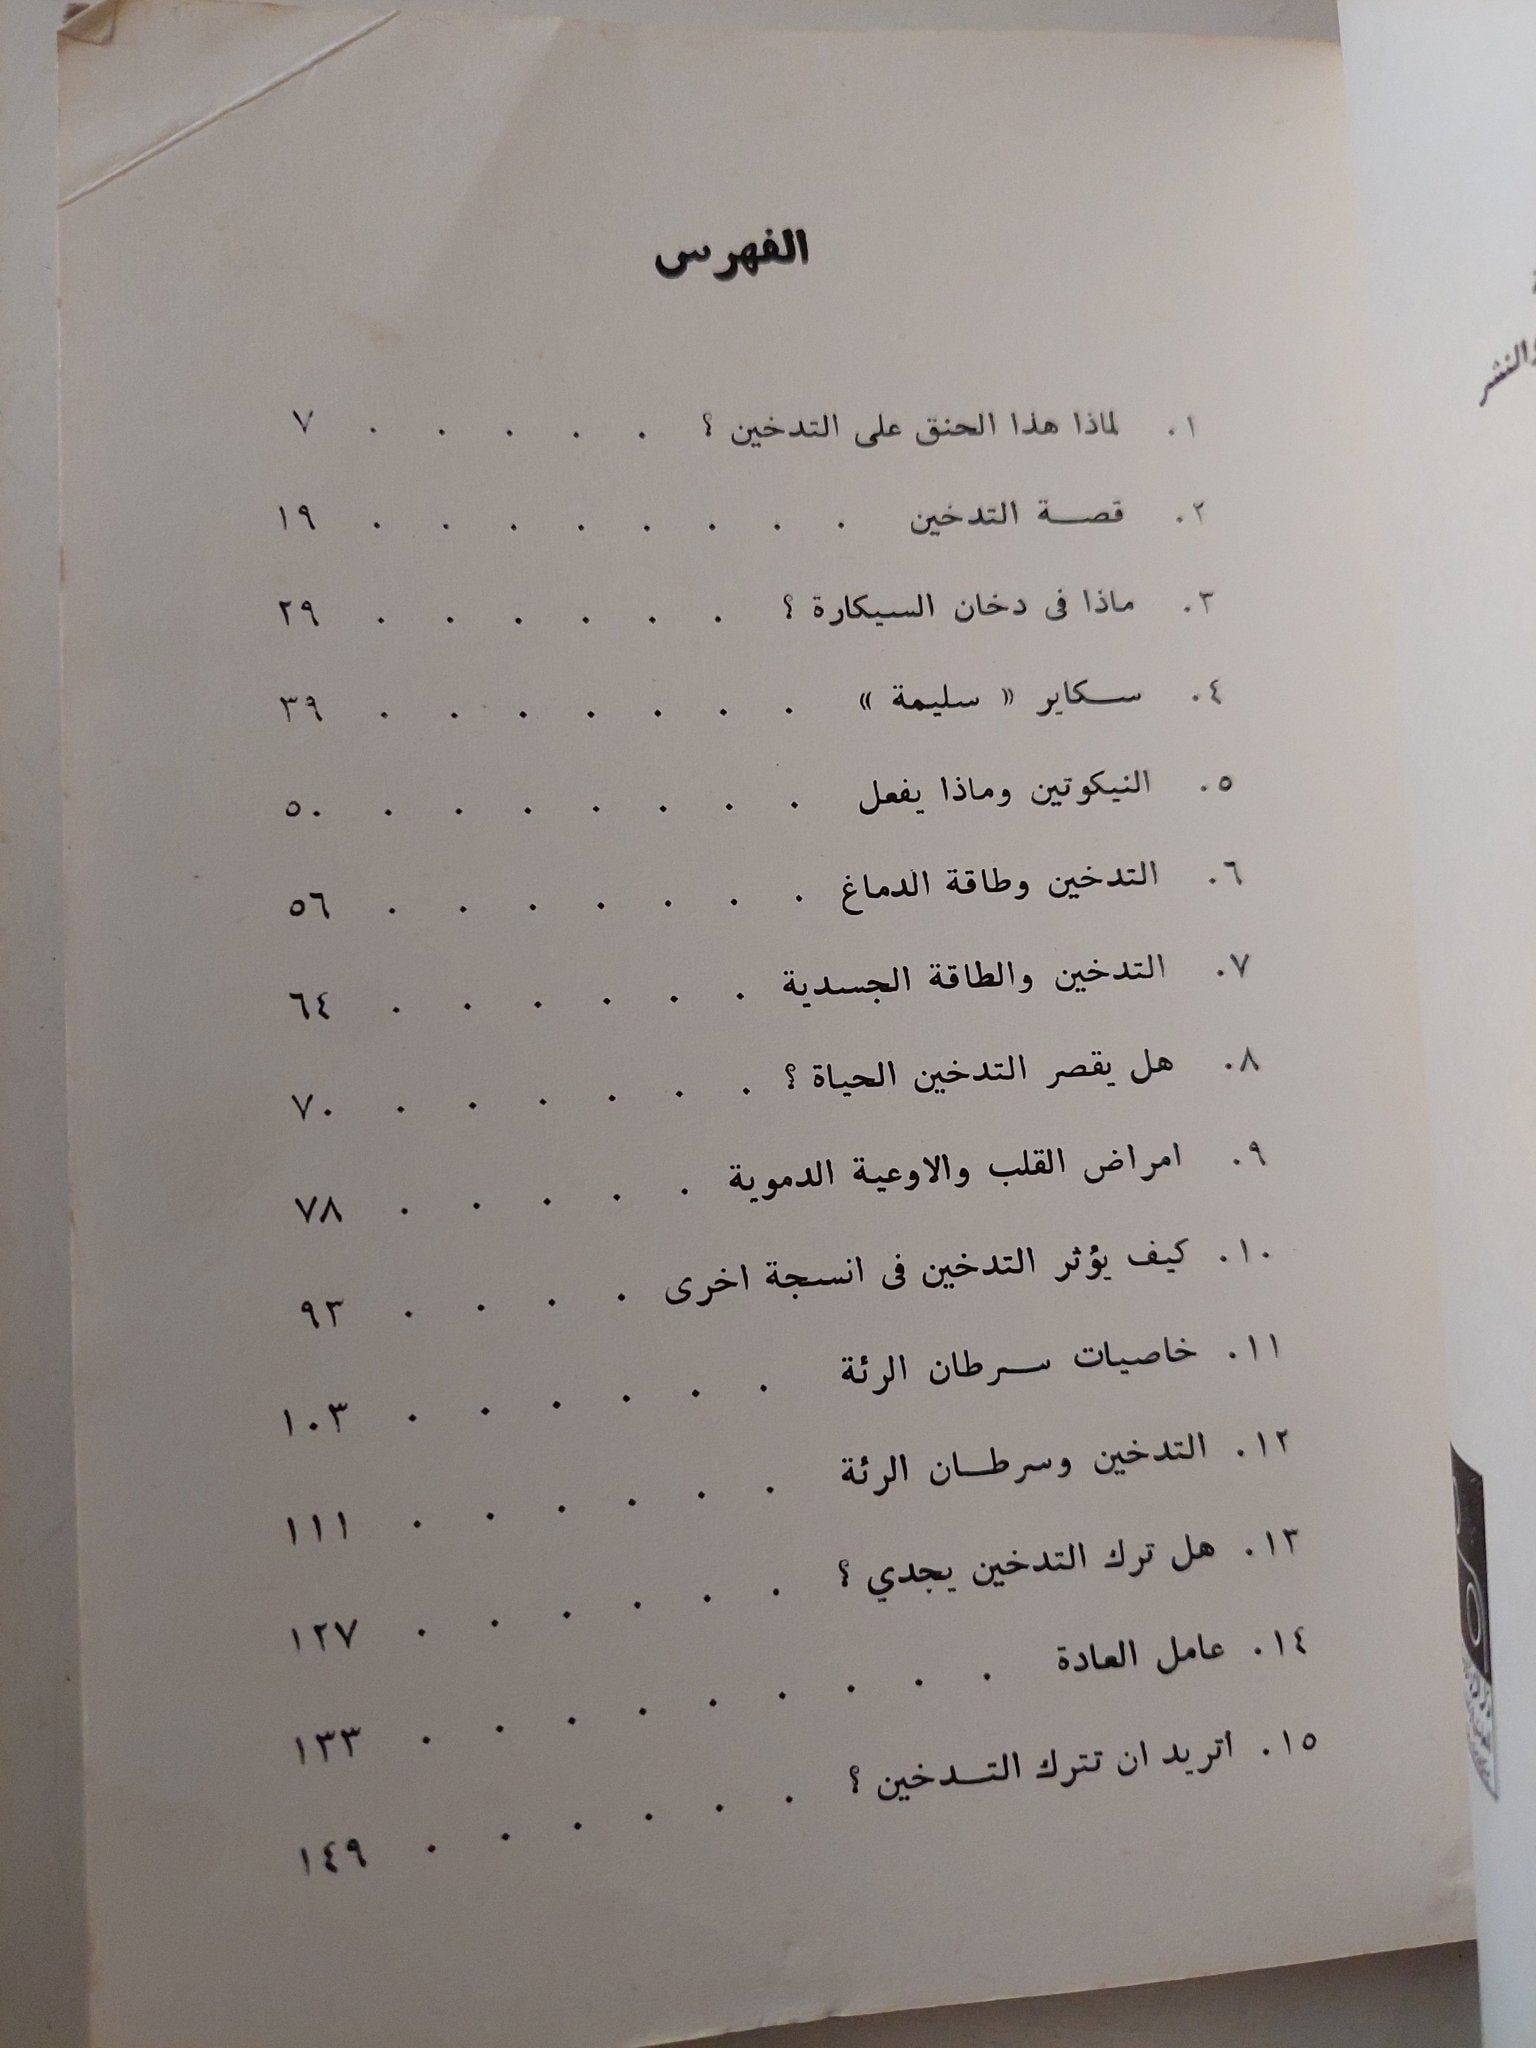 الفهرس
١. لماذا هذا الحنق على التدخين ؟ . . . . . ٧
٢. قصـــة التدخين . . . . . . . . ١٩
٣. ماذا فى دخان السيكارة ؟ . . . . . . ٢٩
٤. ســـكاير « سليمة » . . . . . . . ٣٩
٥. النيكوتين وماذا يفعل . . . . . . . ٥٠
٦. التدخين وطاقة الدماغ . . . . . . . ٥٦
٧. التدخين والطاقة الجسدية . . . . . . ٦٤
٨. هل يقصر التدخين الحياة ؟ . . . . . . ٧٠
٩. امراض القلب والاوعية الدموية . . . . . ٧٨
١٠. كيف يؤثر التدخين فى انسجة اخرى . . . . ٩٣
١١. خاصيات ســـرطان الرئة . . . . . . ١٠٣
١٢. التدخين وسرطـــان الرئة . . . . . . ١١١
١٣. هل ترك التدخين يجدي ؟ . . . . . . ١٢٧
١٤. عامل العادة . . . . . . . . . ١٣٣
١٥. أتريد ان تترك التـــدخين ؟ . . . . . . ١٤٩
والنشر